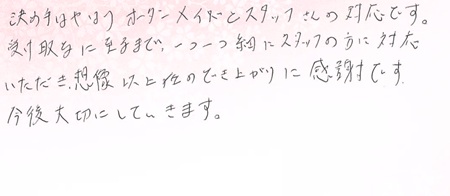 決め手はやはりオーダーメイドとスタッフさんの対応です。
受け取るに至るまで、一つ一つ細にスタッフの方に対応
いただき、想像以上のでき上がりに感謝です
今後大切にしていきます。